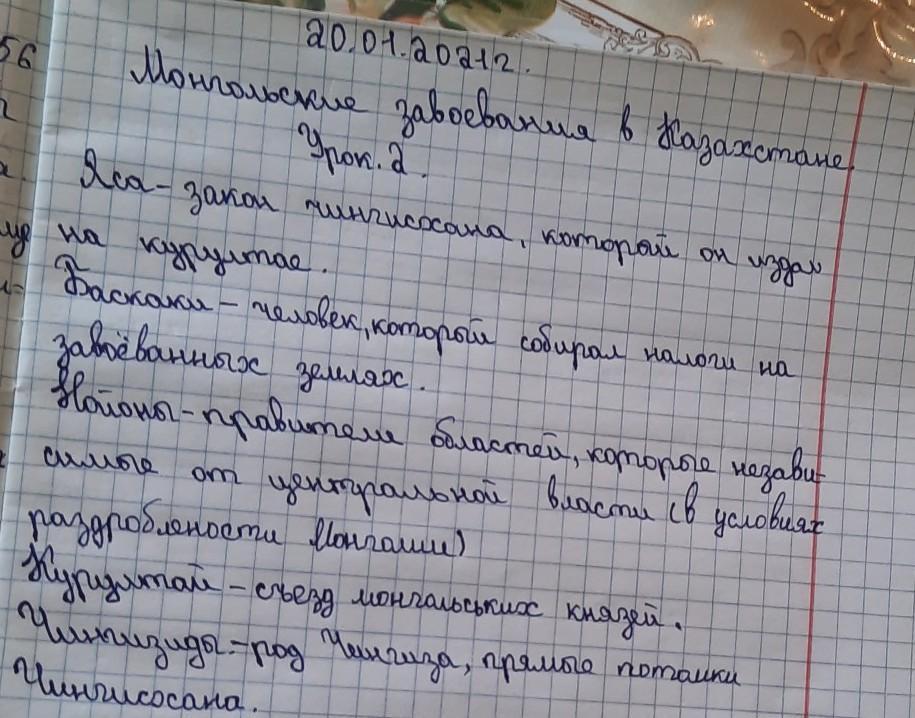 56
20.01.2021г.
Монгольские завоевания в Казахстане.
Урок.2.
Яса-закон чингисхана, которой он издал
на курултае.
Баскаки-человек, которой собирал налоги на
завоёванных землях.
Нойоны-правители областей, которые незави-
симые от центральной власти (в условиях
раздроблености Монголии)
Курултай-съезд монгальських князей.
Чингизиды-род Чингиза, прямые потамки
Чингисхана.